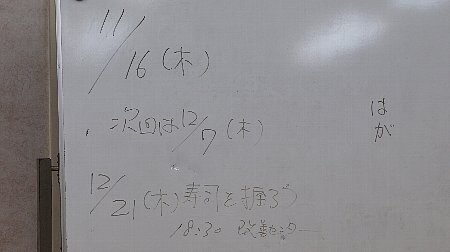 11/16(木)
次回は12/7(木)
は
が
12/21(木)寿司を握ろう
18:30 改善センター